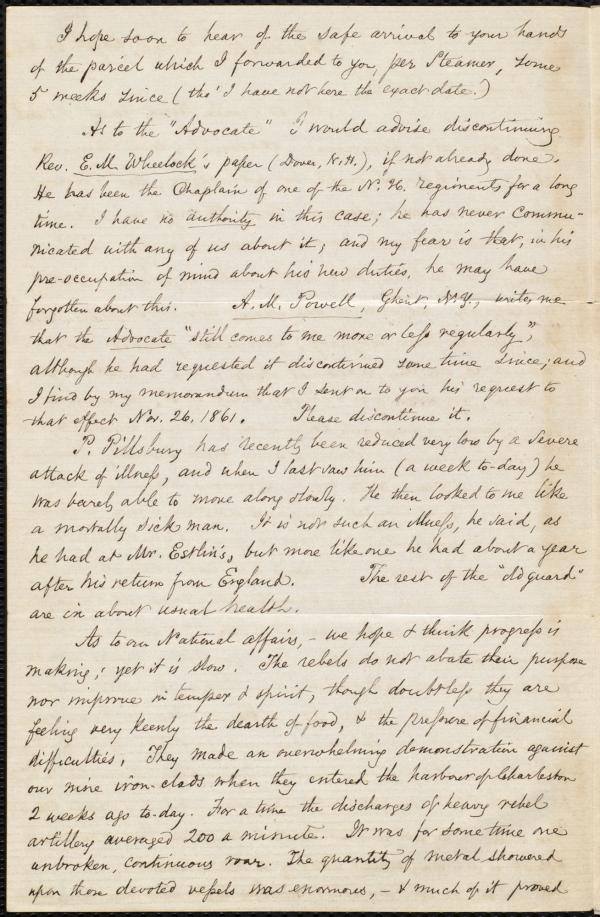 I hope soon to hear of the safe arrival to your hands
of the parcel which I forwarded to you, per Steamer, some
5 weeks since (tho' I have not here the exact date.)
As to the "Advocate" I would advise discontinuing
Rev. E. M. Wheelock's paper (Dover, N. H.), if not already done.
He has been the Chaplain of one of the N. H. regiments for a long
time. I have no authority in this case; he has never commu-
nicated with any of us about it; and my fear is that, in his
pre-occupation of mind about his new duties, he may have
forgotten about this. A. M. Powell, Ghent, N.Y., writes me
that the Advocate "still comes to me more or less regularly",
although he had requested it discontinued some time since; and
I find by my memorandum that I sent on to you his request to
that effect Nov. 26, 1861. Please discontinue it.
P. Pillsbury has recently been reduced very low by a severe
attack of illness, and when I last saw him (a week to-day) he
was barely able to move along slowly. He then looked to me like
a mortally sick man. It is not such an illness, he said, as
he had at Mr. Estlin's, but more like one he had about a year
after his return from England. The rest of the "old guard"
are in about usual health.
As to our National affairs, - we hope & think progress is
making; yet it is slow. The rebels do not abate their purpose
nor improve in temper & spirit, though doubtless they are
feeling very keenly the dearth of food, & the pressure of financial
difficulties. They made an overwhelming demonstration against
our nine iron-clads when they entered the harbour of Charleston
2 weeks ago to-day. For a time the discharges of heavy rebel
artillery averaged 200 a minute. It was for some time one
unbroken, continuous roar. The quantity of metal showered
upon those devoted vessels was enormous, - & much of it proved